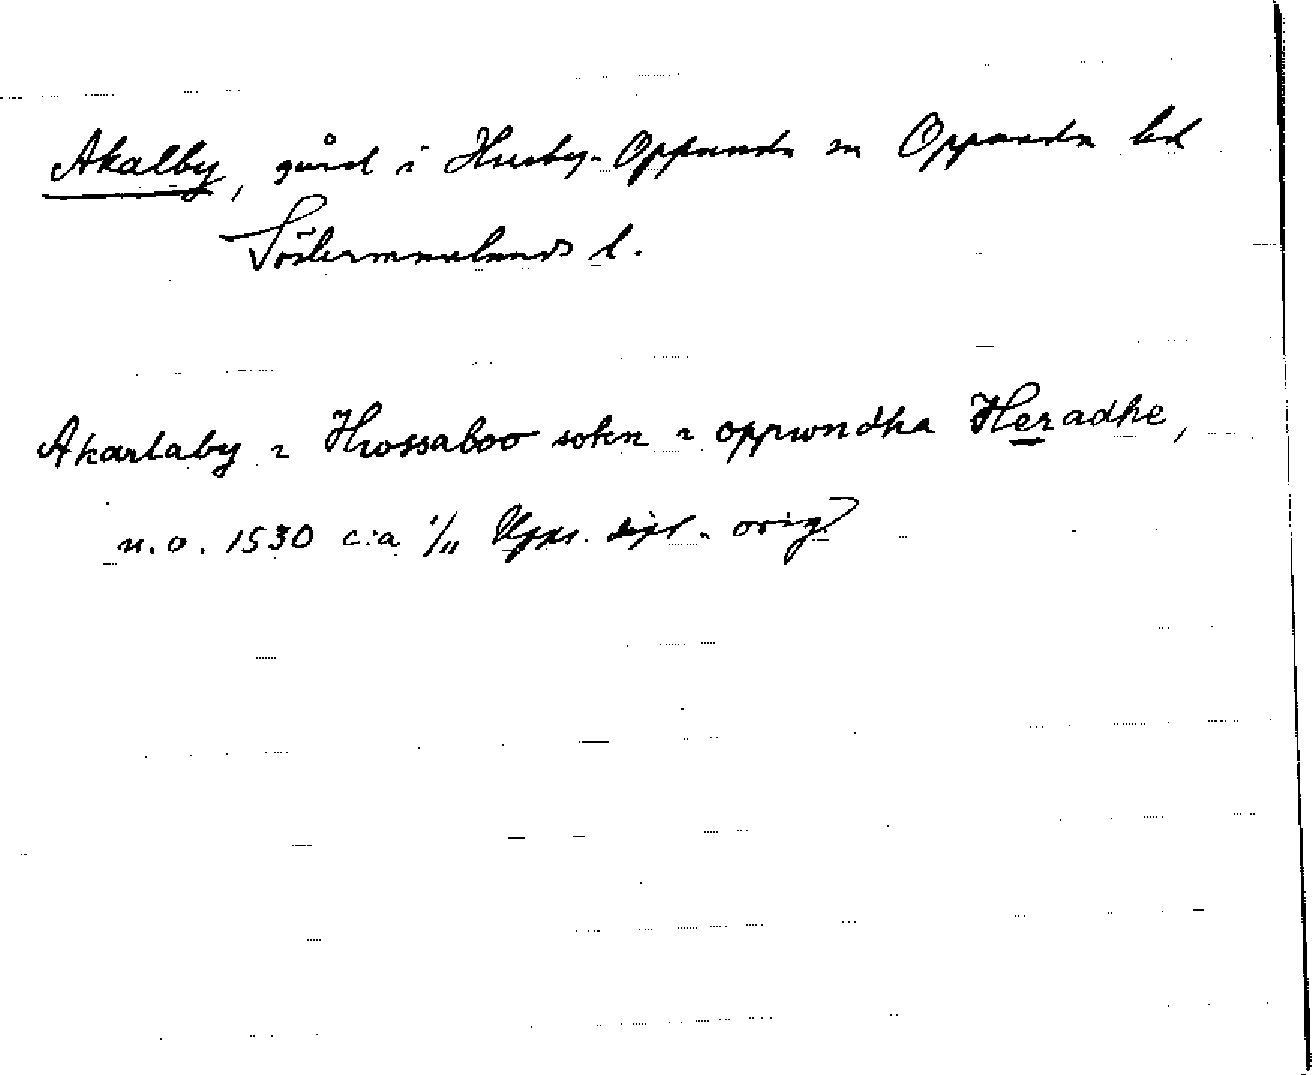 Akalby, gård i Husby-Oppunda sn Oppunda hd
Södermanlands l.
Akarlaby i Hrossaboo sokn i oppwndha Heradhe,
u.o. 1530 c:a 1/11 Upps. dipl. orig